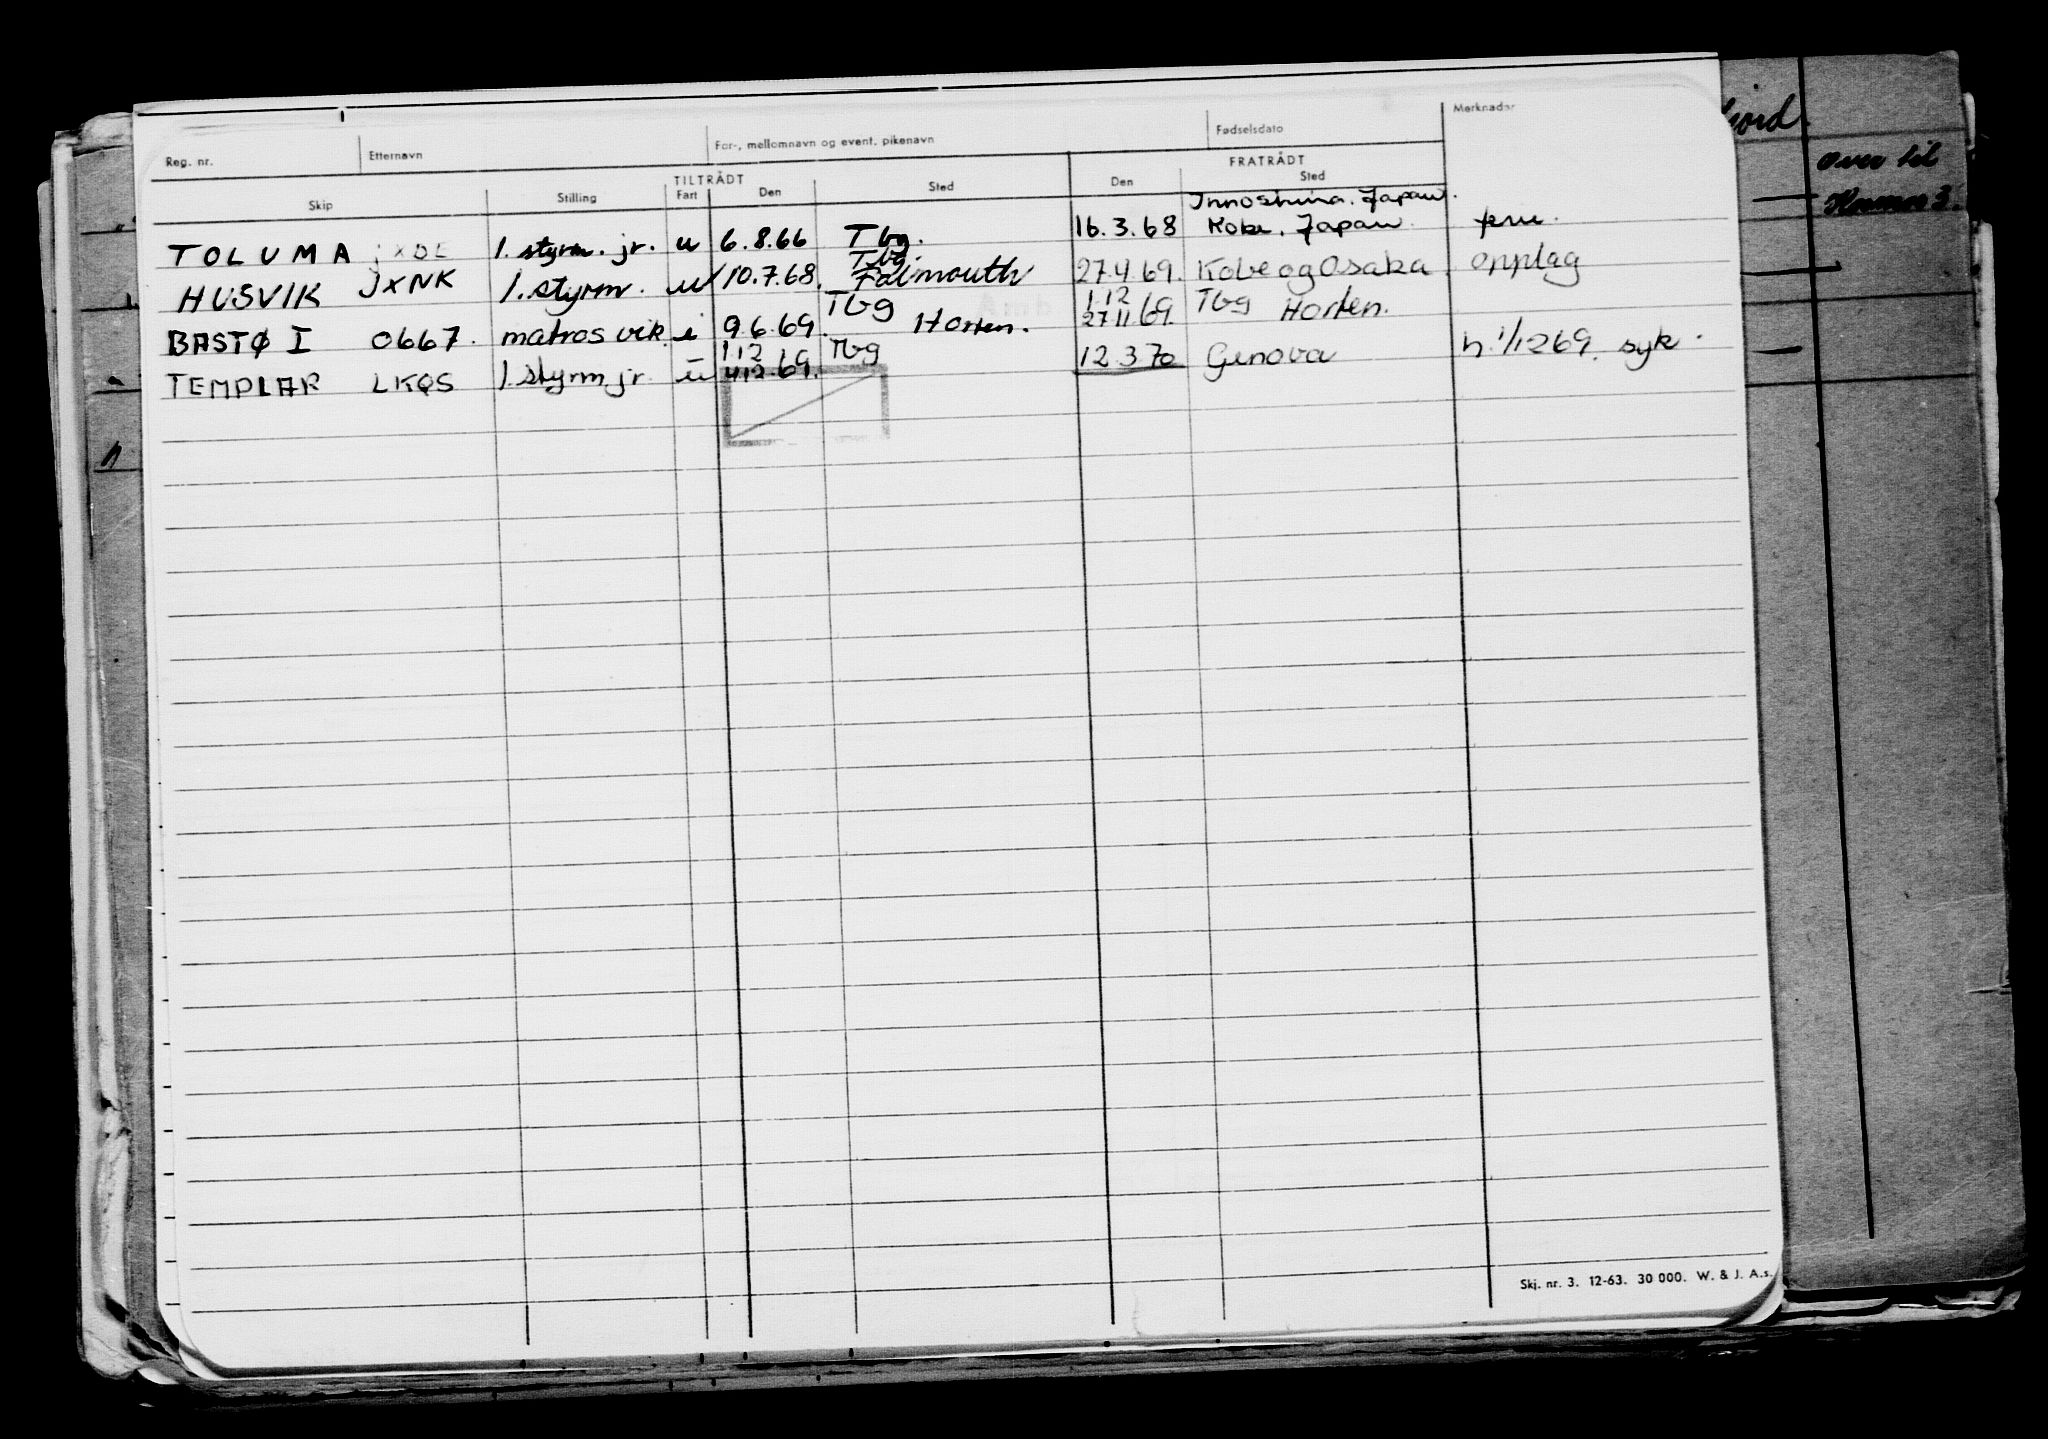 Reg. nr. Etternavn For-, mellomnavn og event. pikenavn Fødselsdato Merknader
TILTRÅDT FRATRÅDT
Skip Stilling Fart Den Sted Den Sted
Innoshima. Japan.
TOLUMA 1. styrm. jr. u 6.8.66 Tbg. 16.3.68 Kobe. Japan
Tbg.
HUSVIK JXNK 1. styrm. u 10.7.68. Falmouth 27.4.69. Kobe og Osaka opplag
Tbg 1.12 Tbg
BASTØ I 0667. matros vik. i 9.6.69. Horten. 27.11.69. Horten.
1.12 Tbg
TEMPLAR LKQS 1. styrm jr. u 4.12.69. 12.3.70 Genova h. 1/1269. syk.
jord.
over til
Skj. nr. 3. 12-63. 30 000. W. & J. A.s.